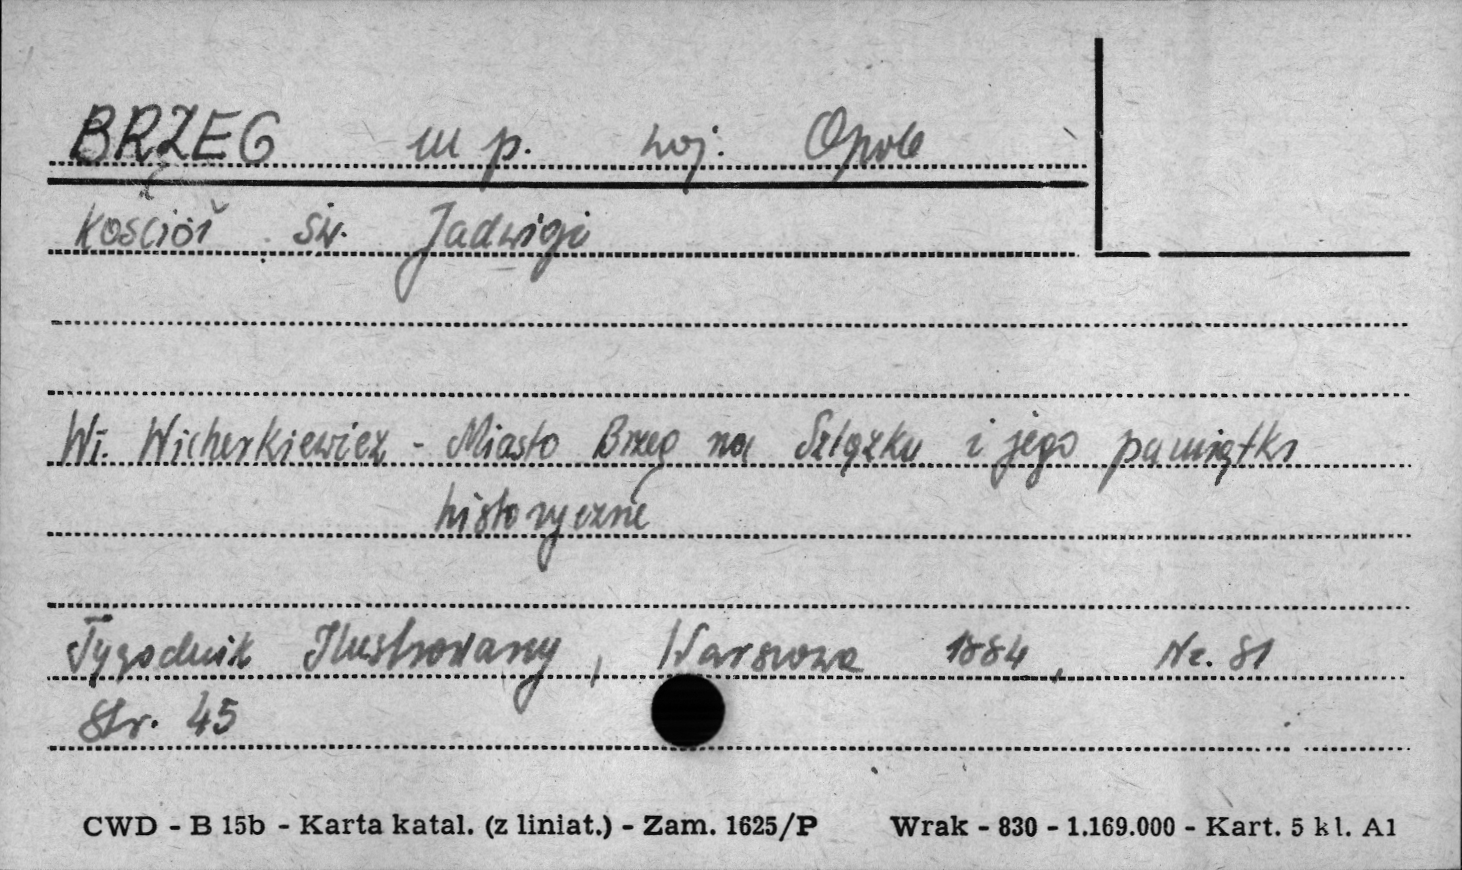 BRZEG m p. woj. Opole
Kościół św. Jadwigi
Wł. Wicherkiewicz - Miasto Brzeg na Szląsku i jego pamiątki
historyczne
Tygodnik Ilustrowany, Warszawa 1884, Nr. 81
Str. 45
CWD - B 15b - Karta katal. (z liniat.) - Zam. 1625/P Wrak - 830 - 1.169.000 - Kart. 5 kl. A1